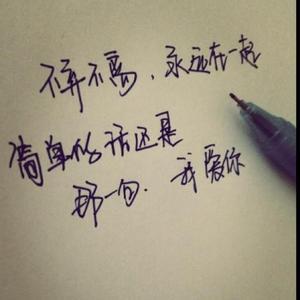 不弃不离，永远在一起
简单的话还是
那一句．我爱你